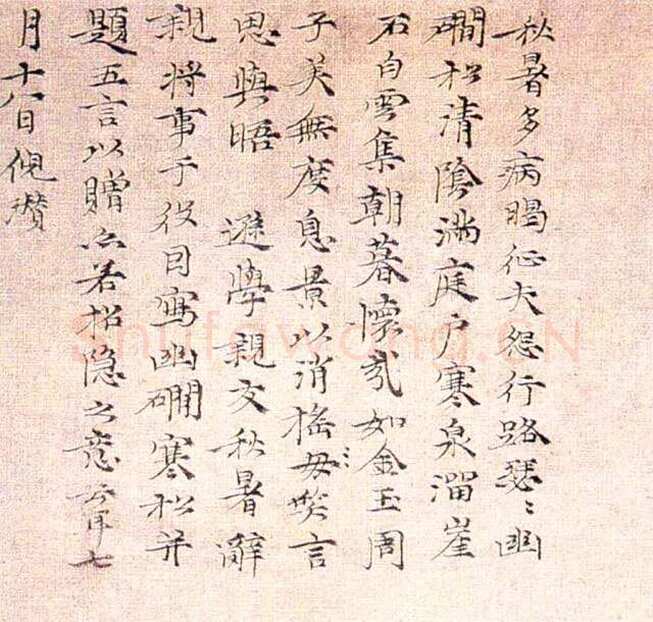 秋暑多病暍征夫怨行路瑟〻幽
磵松清陰滿庭户寒泉溜崖
石白雲集朝暮懷哉如金玉周
子美無度息景以消搖毋笑言
思與晤 遜學親友秋暑辭
親將事于役因寫幽磵寒松并
題五言以贈亦若招隐之意云耳七
月十八日倪瓚
shufawang.CN